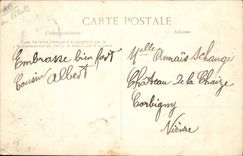 CARTE POSTALE
Correspondance
Adresse
Embrasse bien fort
Cousin Albert
Melle Annaïs Schange
Château de la Chaize
Corbigny
Nièvre